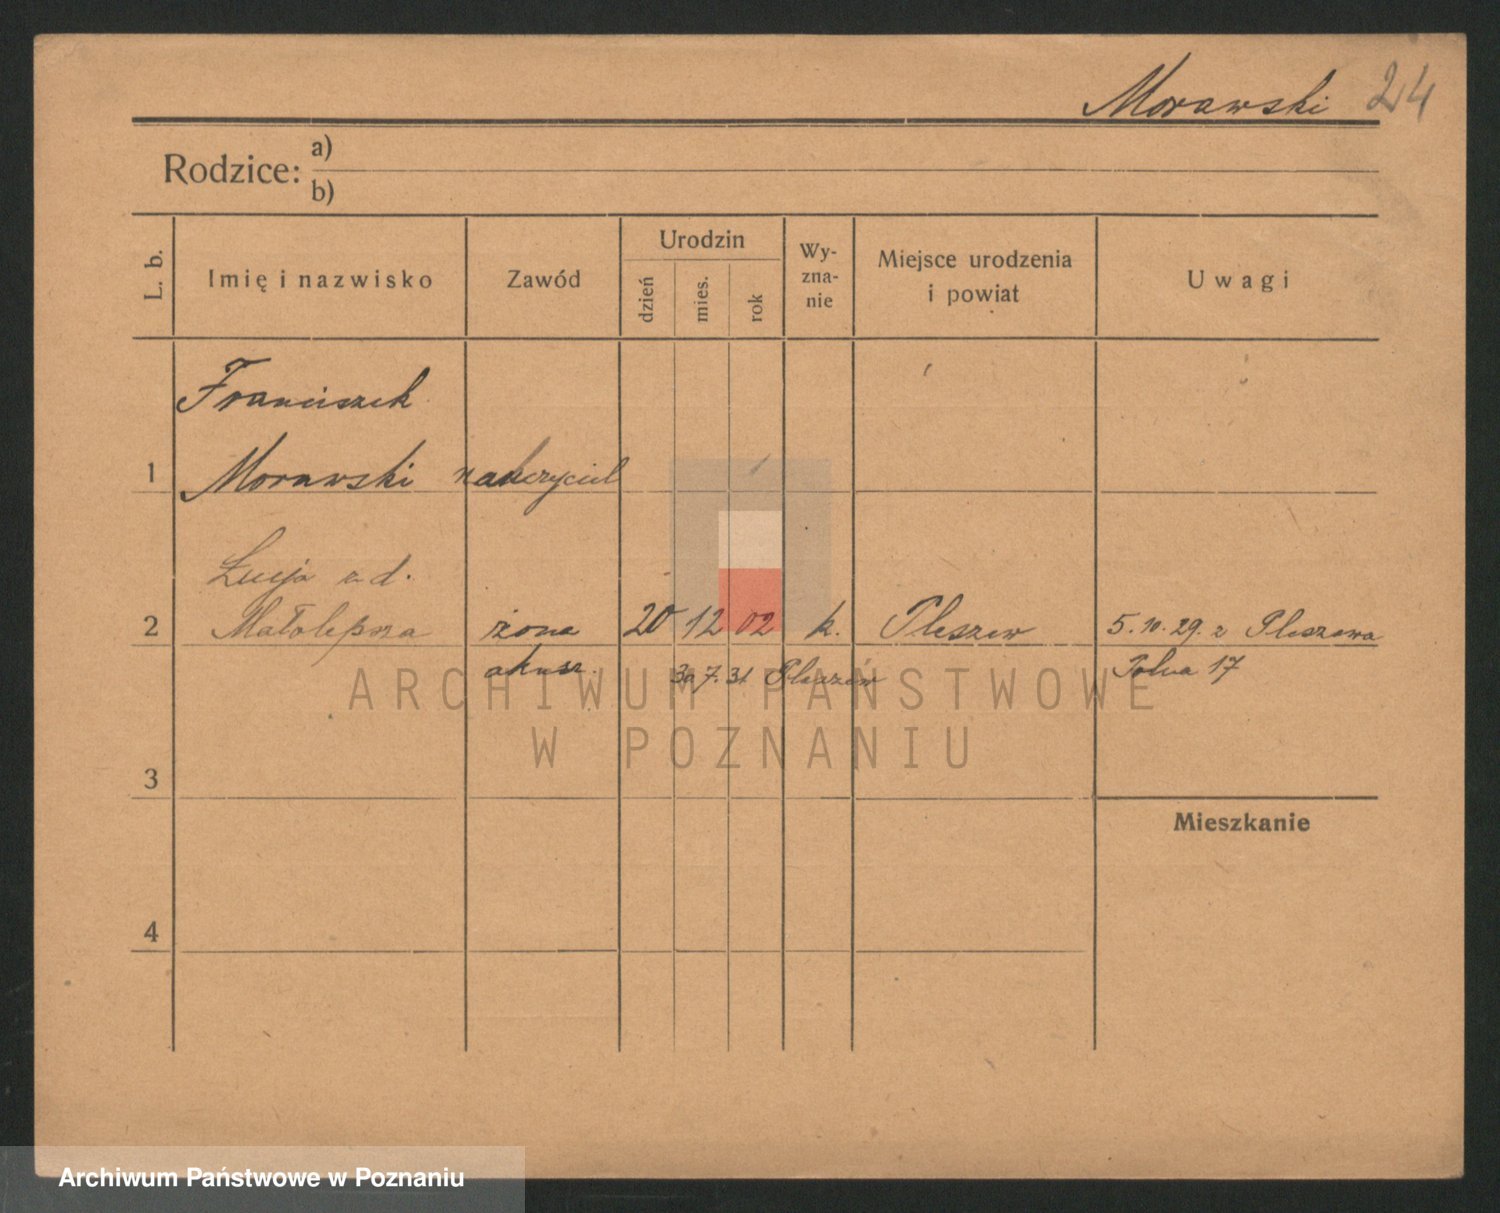 Morawski 24
Rodzice: a)
b)
L. b.
Imię i nazwisko
Zawód
Urodzin
dzień
mies.
rok
Wy-
zna-
nie
Miejsce urodzenia
i powiat
Uwagi
Franciszek
1 Morawski nauczyciel
Łucja z d.
2 Małolepsza żona 20 12 02 k. Pleszew 5.10.29. z Pleszewa
akusz. 30 7. 31 Pleszew Polna 17
ARCHIWUM PAŃSTWOWE
W POZNANIU
3
Mieszkanie
4
Archiwum Państwowe w Poznaniu